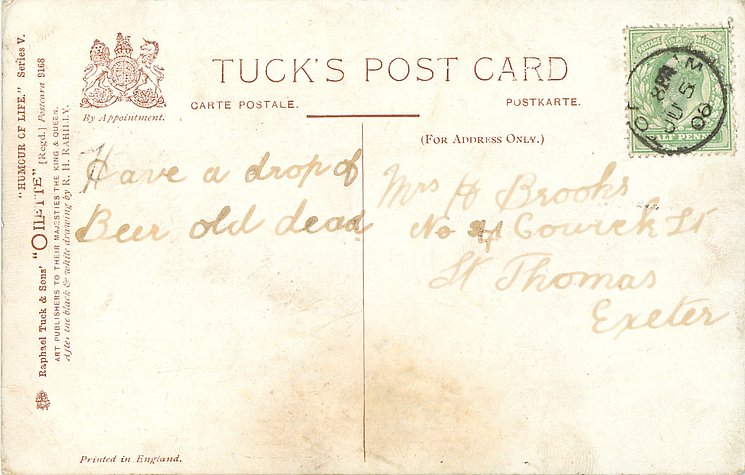 "HUMOUR OF LIFE." Series V.
Raphael Tuck & Sons' "OILETTE" [Regd.] Postcard 9168
ART PUBLISHERS TO THEIR MAJESTIES THE KING & QUEEN.
After the black & white drawing by R. H. RAHILLY.
By Appointment.
TUCK'S POST CARD
CARTE POSTALE.
POSTKARTE.
(FOR ADDRESS ONLY.)
POSTAGE
HALF PENNY
JU 5
06
Have a drop of
Beer old dead
Mrs H Brooks
No Cowick St
St Thomas
Exeter
Printed in England.